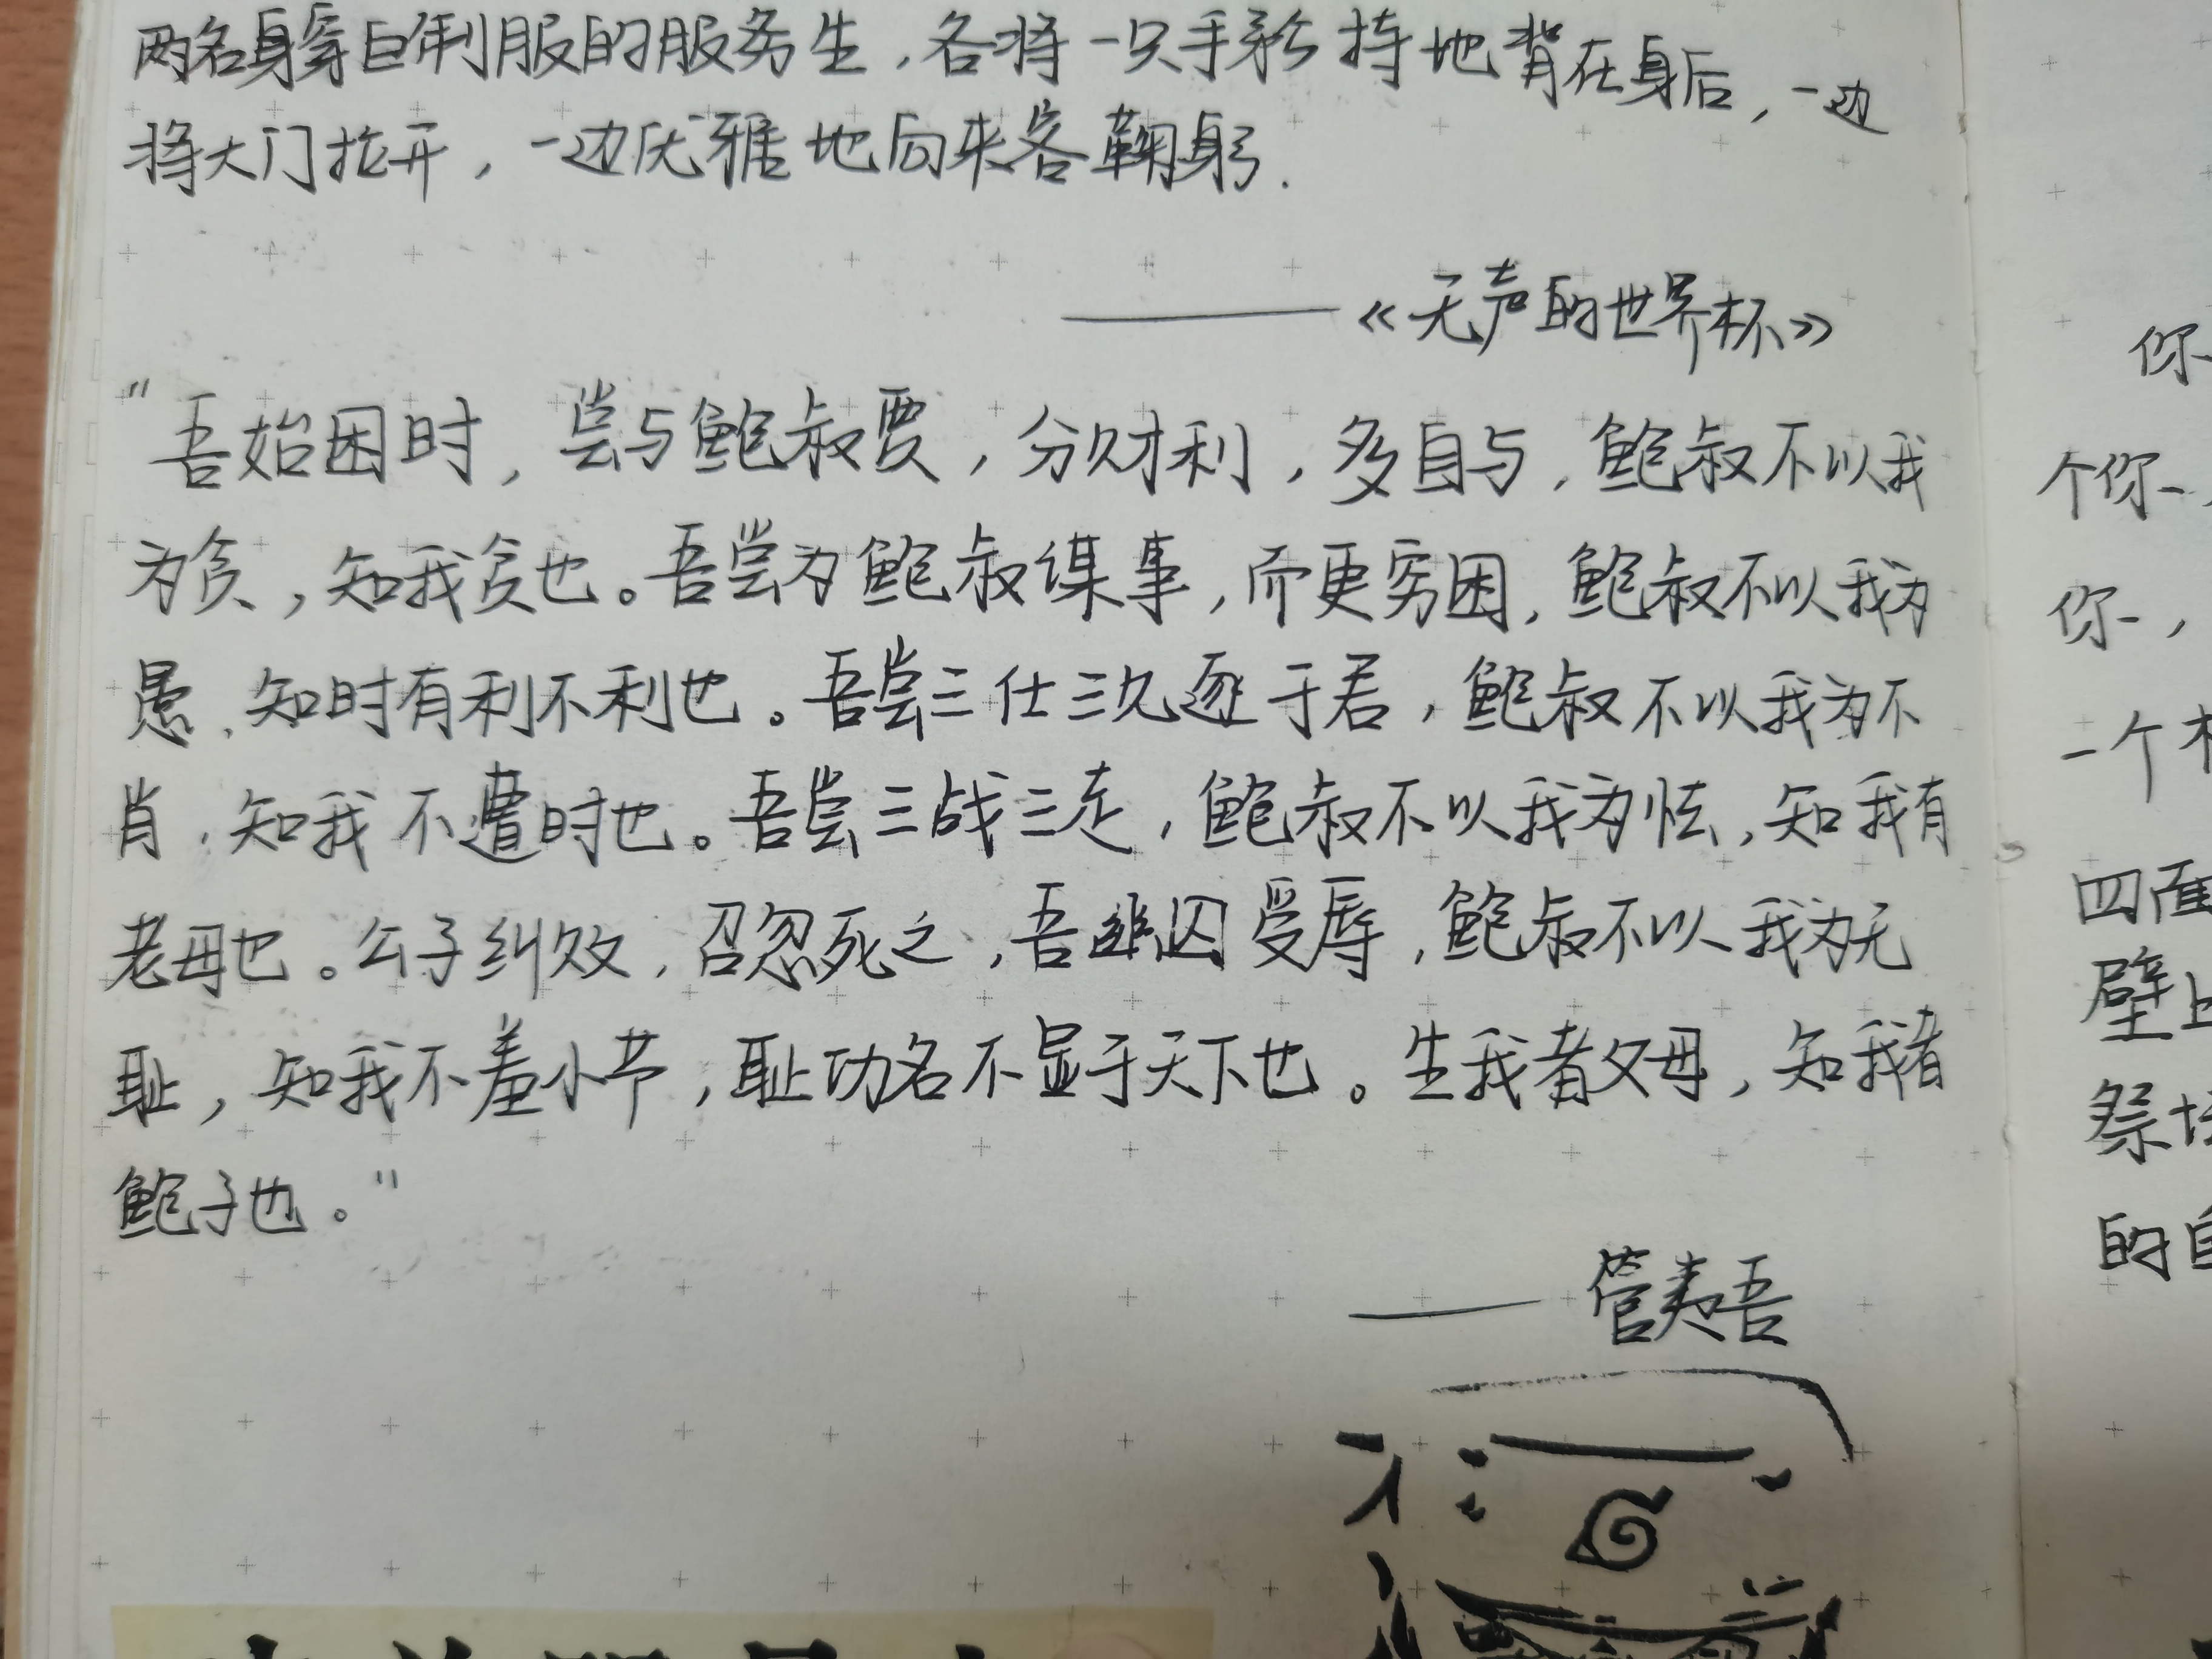 两名身穿白制服的服务生，各将一只手矜持地背在身后，一边
将大门拉开，一边优雅地向来客鞠躬.
——《无声的世界杯》
“吾始困时，尝与鲍叔贾，分财利，多自与，鲍叔不以我
为贪，知我贫也。吾尝为鲍叔谋事，而更穷困，鲍叔不以我为
愚，知时有利不利也。吾尝三仕三见逐于君，鲍叔不以我为不
肖，知我不遭时也。吾尝三战三走，鲍叔不以我为怯，知我有
老母也。公子纠败，召忽死之，吾幽囚受辱，鲍叔不以我为无
耻，知我不羞小节，耻功名不显于天下也。生我者父母，知我者
鲍子也。”
——管夷吾
你
个你，
你，
一个
四面
壁上
祭坛
的自